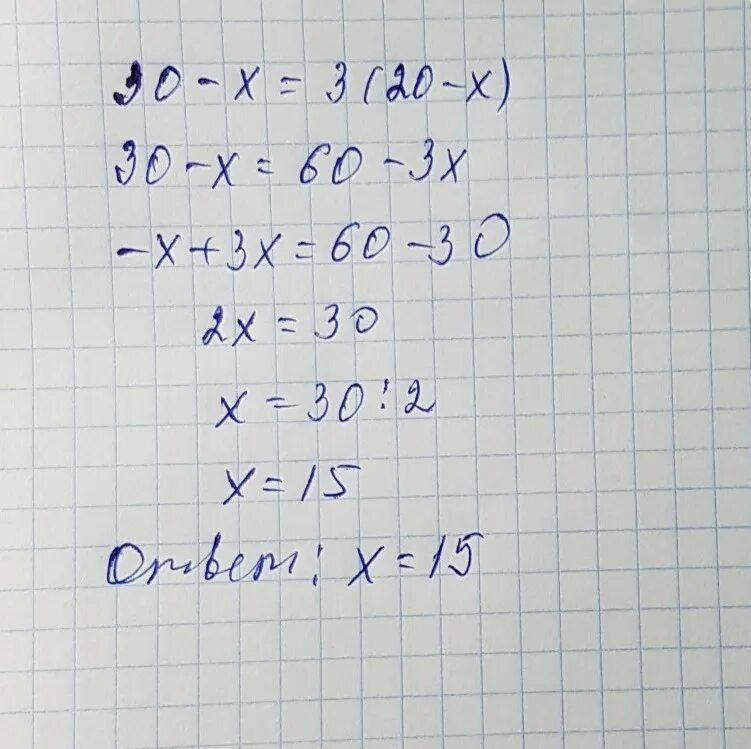 30 - x = 3(20 - x)
30 - x = 60 - 3x
-x + 3x = 60 - 30
2x = 30
x = 30 : 2
x = 15
Ответ: x = 15